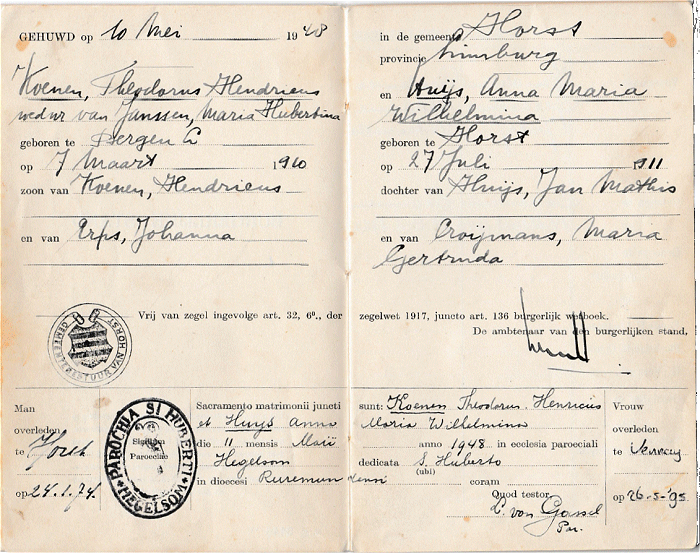 GEHUWD op 10 Mei 1948
Koenen, Theodorus Hendricus
wedur van Janssen, Maria Hubertina
geboren te Bergen L
op 7 Maart 1910
zoon van Koenen, Hendricus
en van Erps, Johanna
in de gemeente Horst
provincie Limburg
en Huijs, Anna Maria
Wilhelmina
geboren te Horst
op 27 Juli 1911
dochter van Huijs, Jan Mathis
en van Croijmans, Maria
Gertruda
Vrij van zegel ingevolge art. 32, 6°., der zegelwet 1917, juncto art. 136 burgerlijk wetboek.
De ambtenaar van den burgerlijken stand,
GEMEENTEBESTUUR VAN HORST
Man
overleden
te Horst
op 24.1.74.
PAROCHIA SI HUBERTI
Sigillum
Parochiae
HEGELSOM
Sacramento matrimonii juncti sunt: Koenen Theodorus Henricus
et Huijs Anna Maria Wilhelmina
die 11 mensis Maii anno 1948 in ecclesia paroeciali
Hegelsom dedicata S. Huberto
(ubi)
in dioecesi Ruremundensi coram
Quod testor,
L. van Gassel
Par.
Vrouw
overleden
te Venray
op 26-5-'95